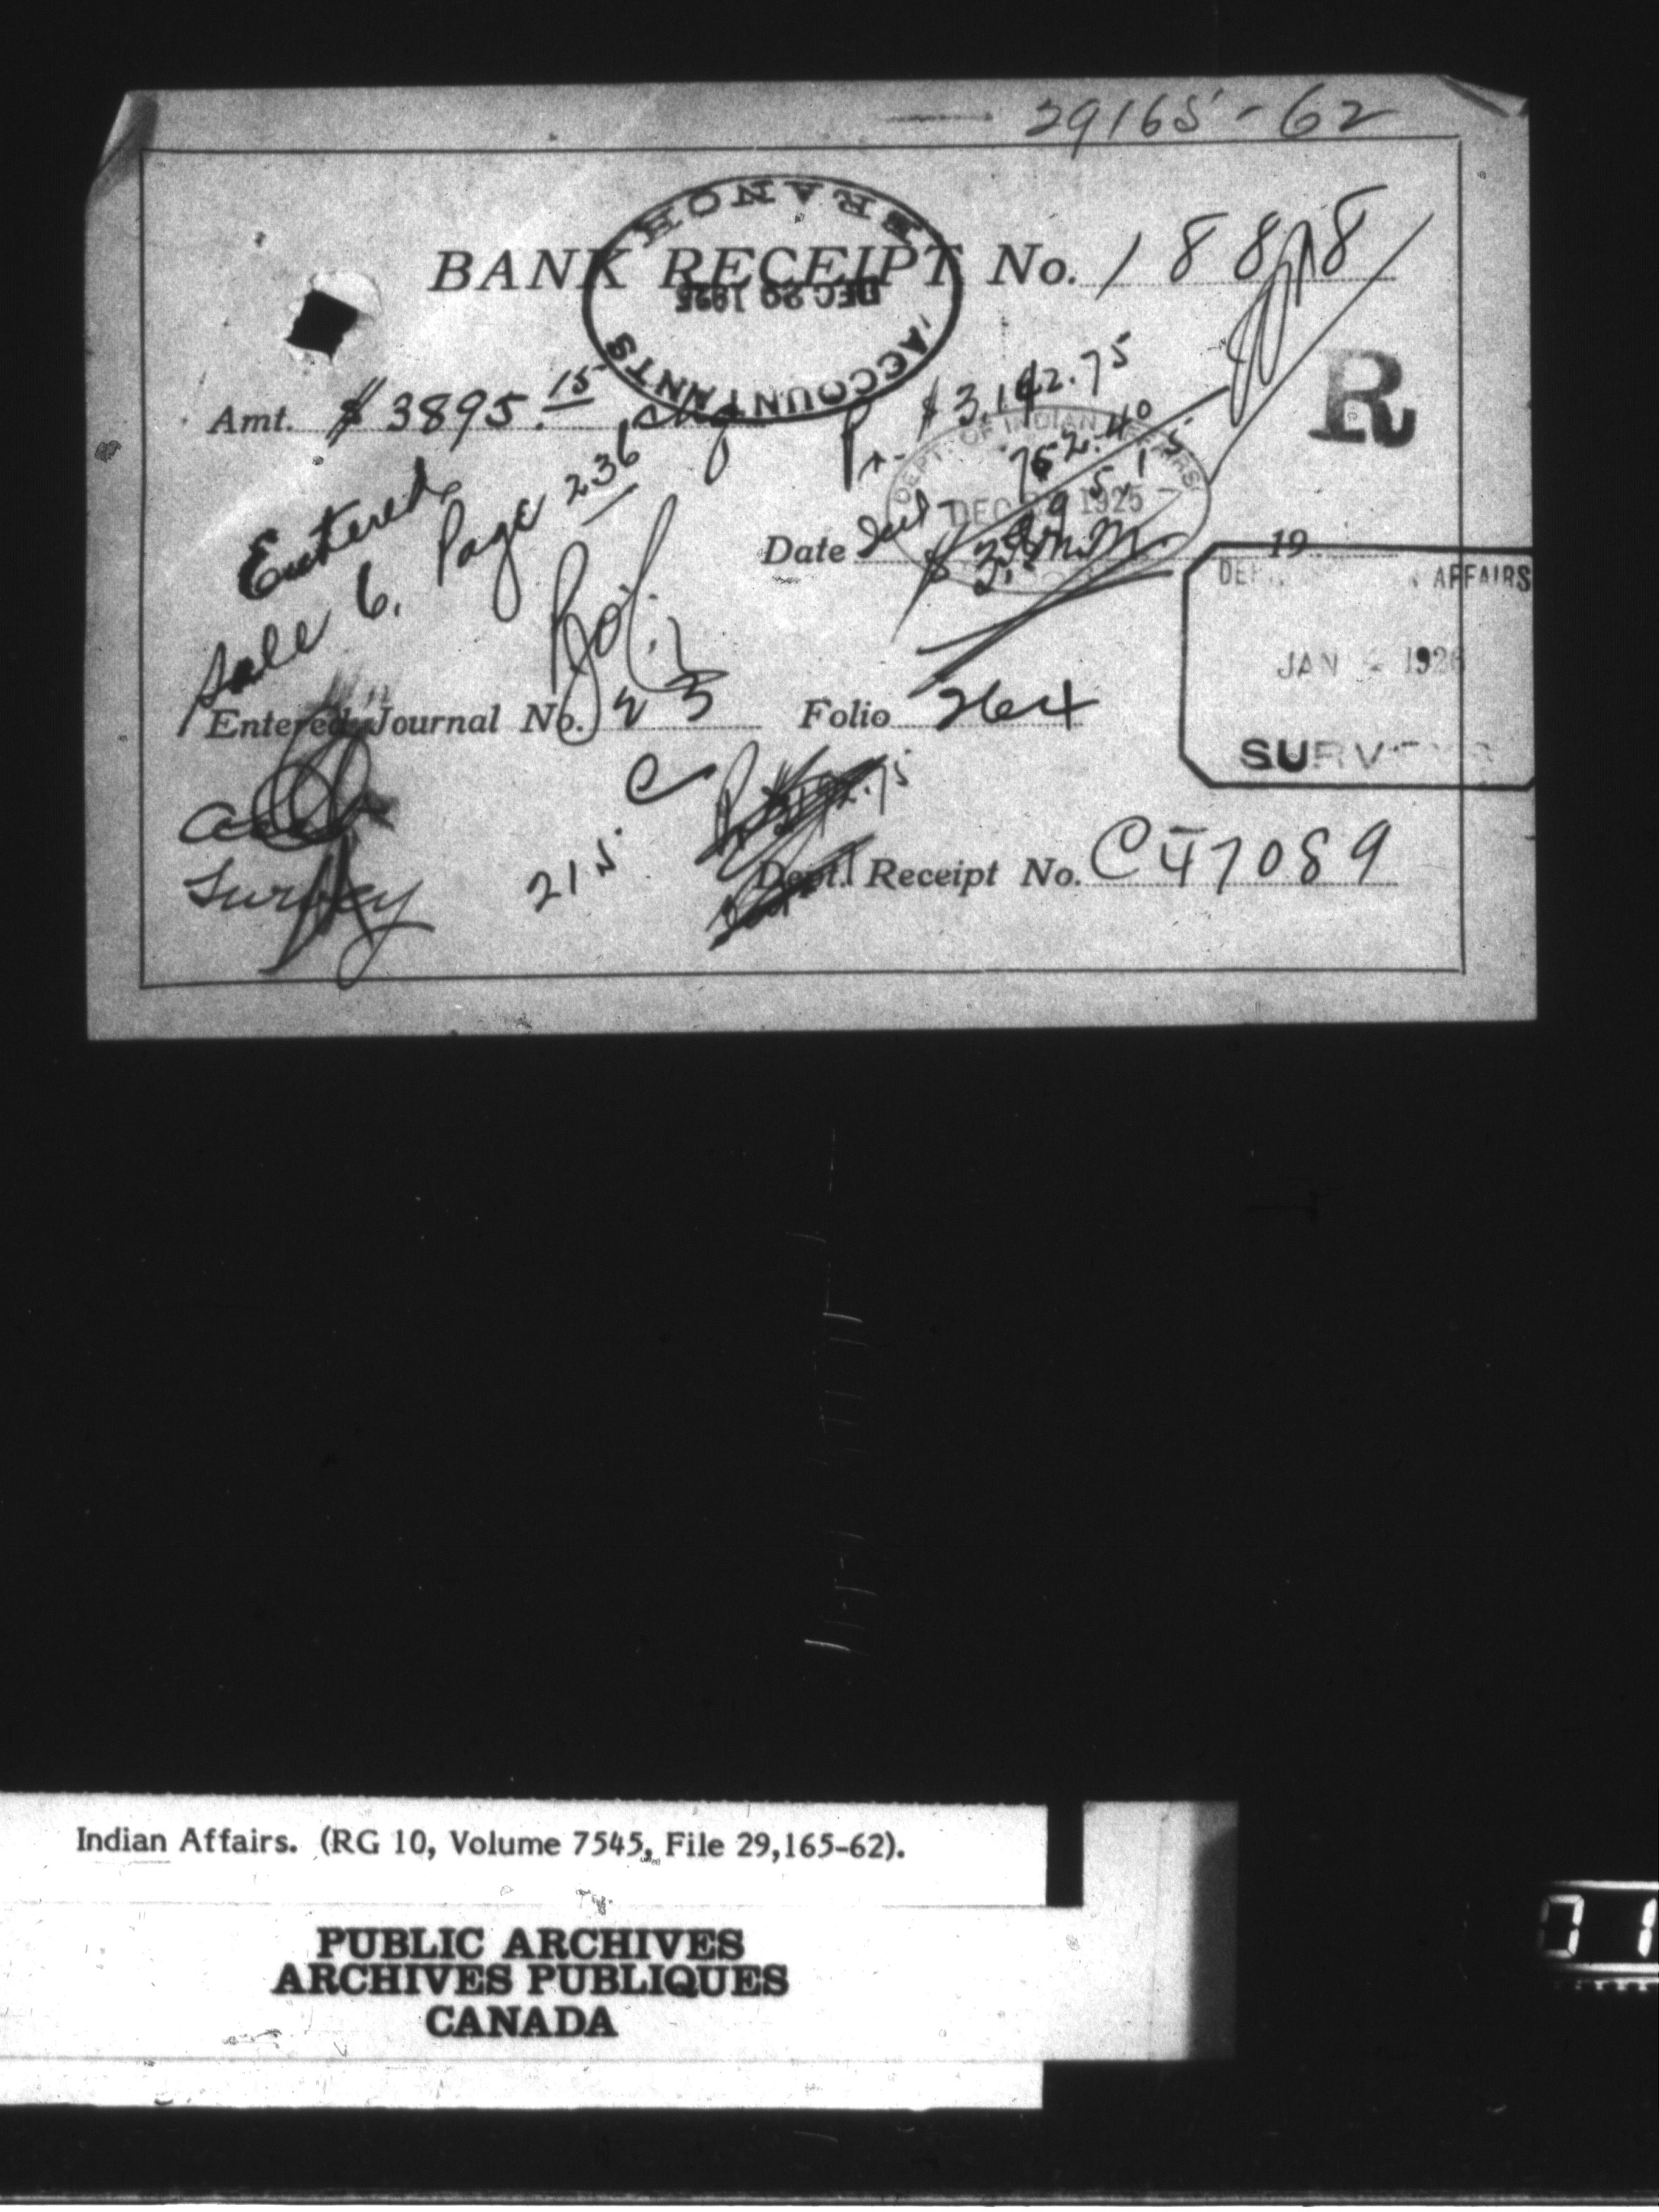 29165-62
BANK RECEIPT No. 18818
ACCOUNTANTS BRANCH
DEC 29 1925
R
Amt. $ 3895.15
Pr. $ 3,142.75
752.40
DEPT. OF INDIAN AFFAIRS
DEC 1925
Entered
Sale 6. Page 236
Date 19
AFFAIRS
JAN 1926
SURVEYS
Entered Journal No. 23 Folio 264
C
215
Survey
Dept. Receipt No. C47089
Indian Affairs. (RG 10, Volume 7545, File 29,165-62).
PUBLIC ARCHIVES
ARCHIVES PUBLIQUES
CANADA
01